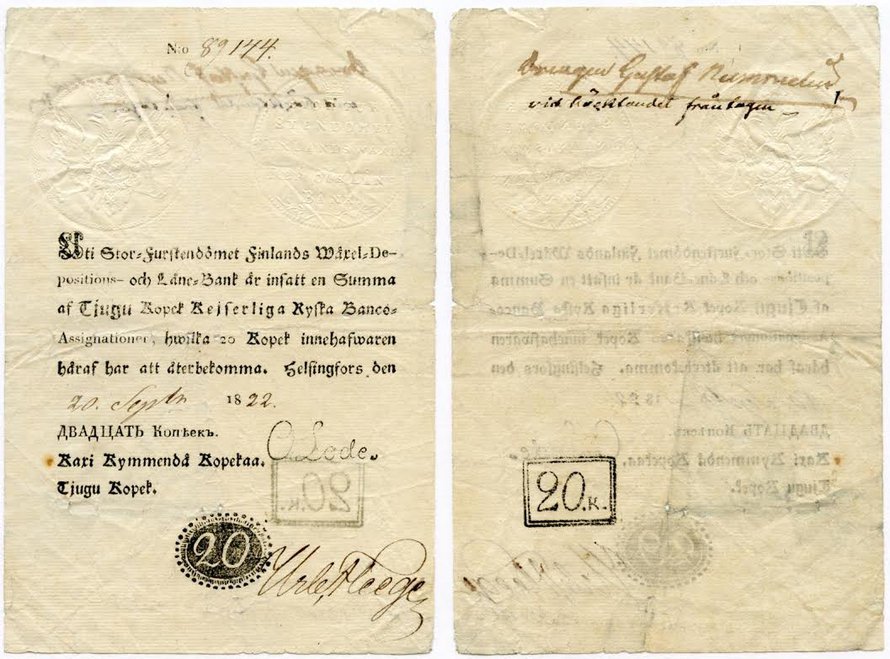 N:o 89144.
Uti Stor-Furstendömet Finlands Wäxel-De-
positions- och Låne-Bank är insatt en Summa
af Tjugu Kopek Kejserliga Ryska Banco-
Assignationer, hwilka 20 Kopek innehafwaren
häraf har att återbekomma. Helsingfors den
20. Septr 1822.
ДВАДЦАТЬ Копѣекъ.
Kaxi Kymmendä Kopekaa.
Tjugu Kopek.
O. Lode.
20
Gustaf
vid fråntagen
20.K.